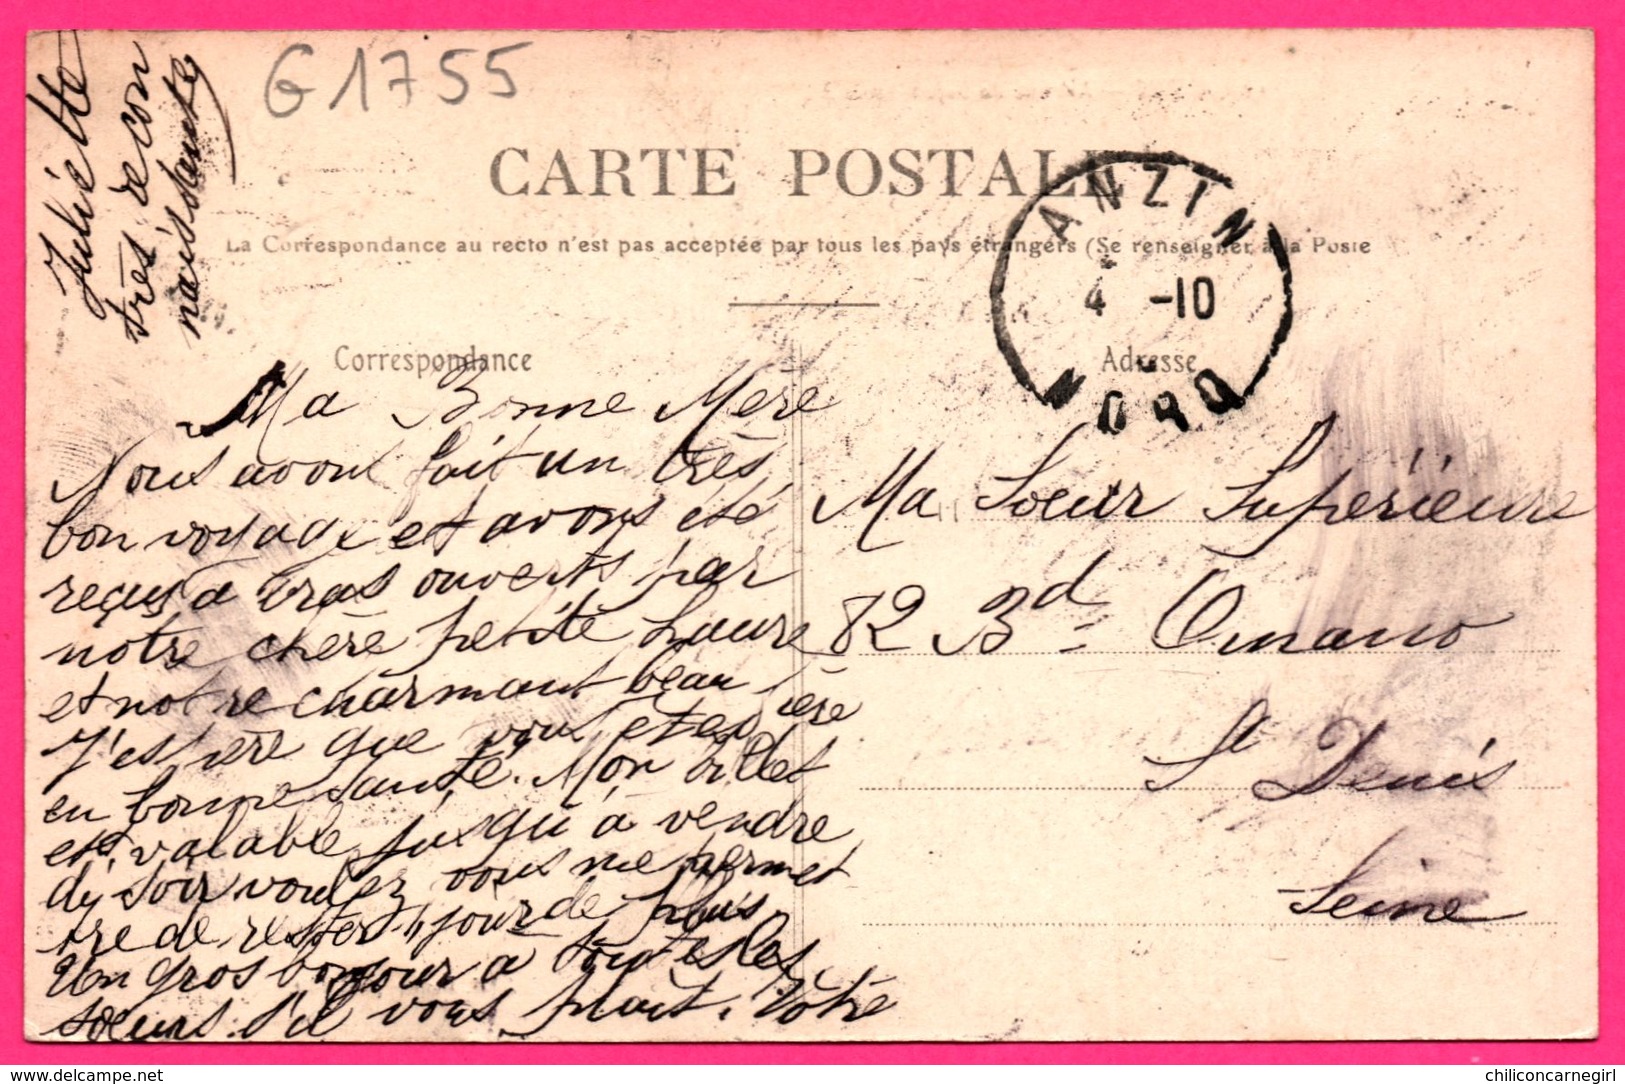 G1755
CARTE POSTALE
La Correspondance au recto n'est pas acceptée par tous les pays étrangers (Se renseigner à la Poste
ANZIN
4 -10
NORD
Correspondance
Adresse
Ma Bonne Mère
Nous avont fait un très
bon voyage et avons été
reçus a bras ouverts par
notre chère petite Laure
et notre charmant beau
J'espère que vous etes
en bonne santé. Mon billet
est valable jusqu'à vendre
di soir voulez vous me permet
tre de rester 1 jour de plus
Un gros bonjour a toutes les
soeurs s'il vous plait. Votre
Juliette
très recon
naissante
Ma Soeur Supérieure
82 Bd Ornano
St Denis
Seine
www.delcampe.net
chiliconcarnegirl